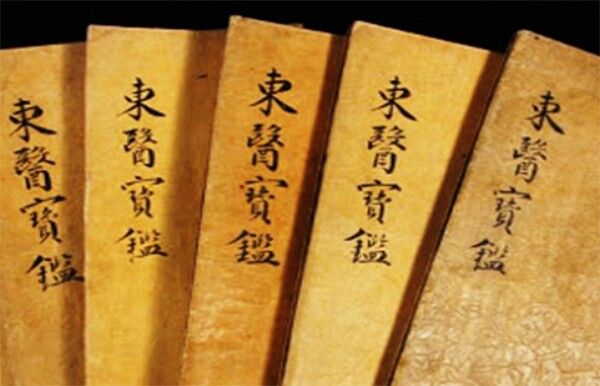 東醫寶鑑
東醫寶鑑
東醫寶鑑
東醫寶鑑
東醫寶鑑